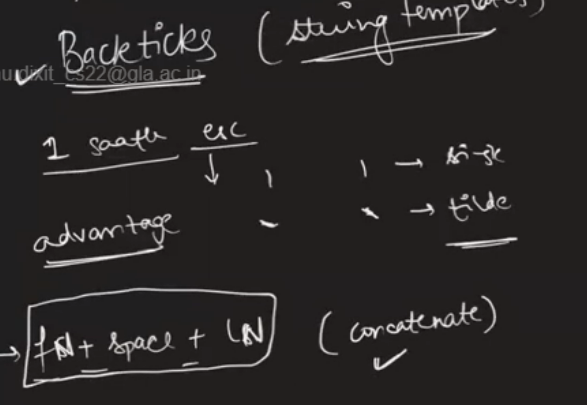 Backticks (string templates)
dixit_cs22@gla.ac.in
1 saath esc
↓ ' ' ' → single
advantage ` ` → tilde
→ fN + space + LN (concatenate)